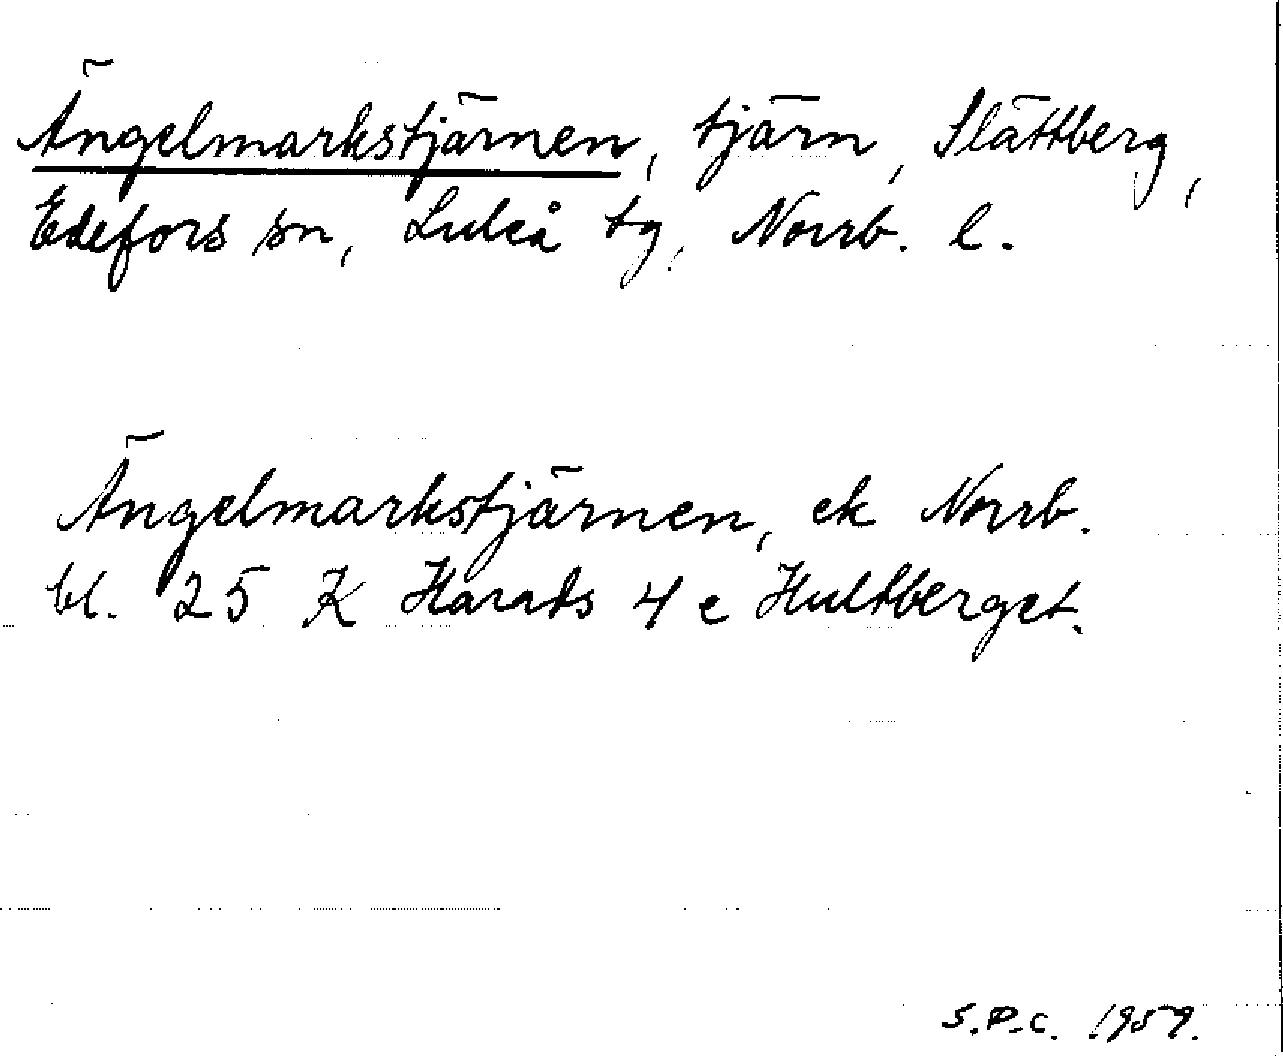 Ängelmarkstjärnen, tjärn, Slättberg,
Edefors sn, Luleå tg, Norrb. l.
Ängelmarkstjärnen, ek Norrb.
bl. 25 K Harads 4 e Hultberget.
S.P.C. 1959.